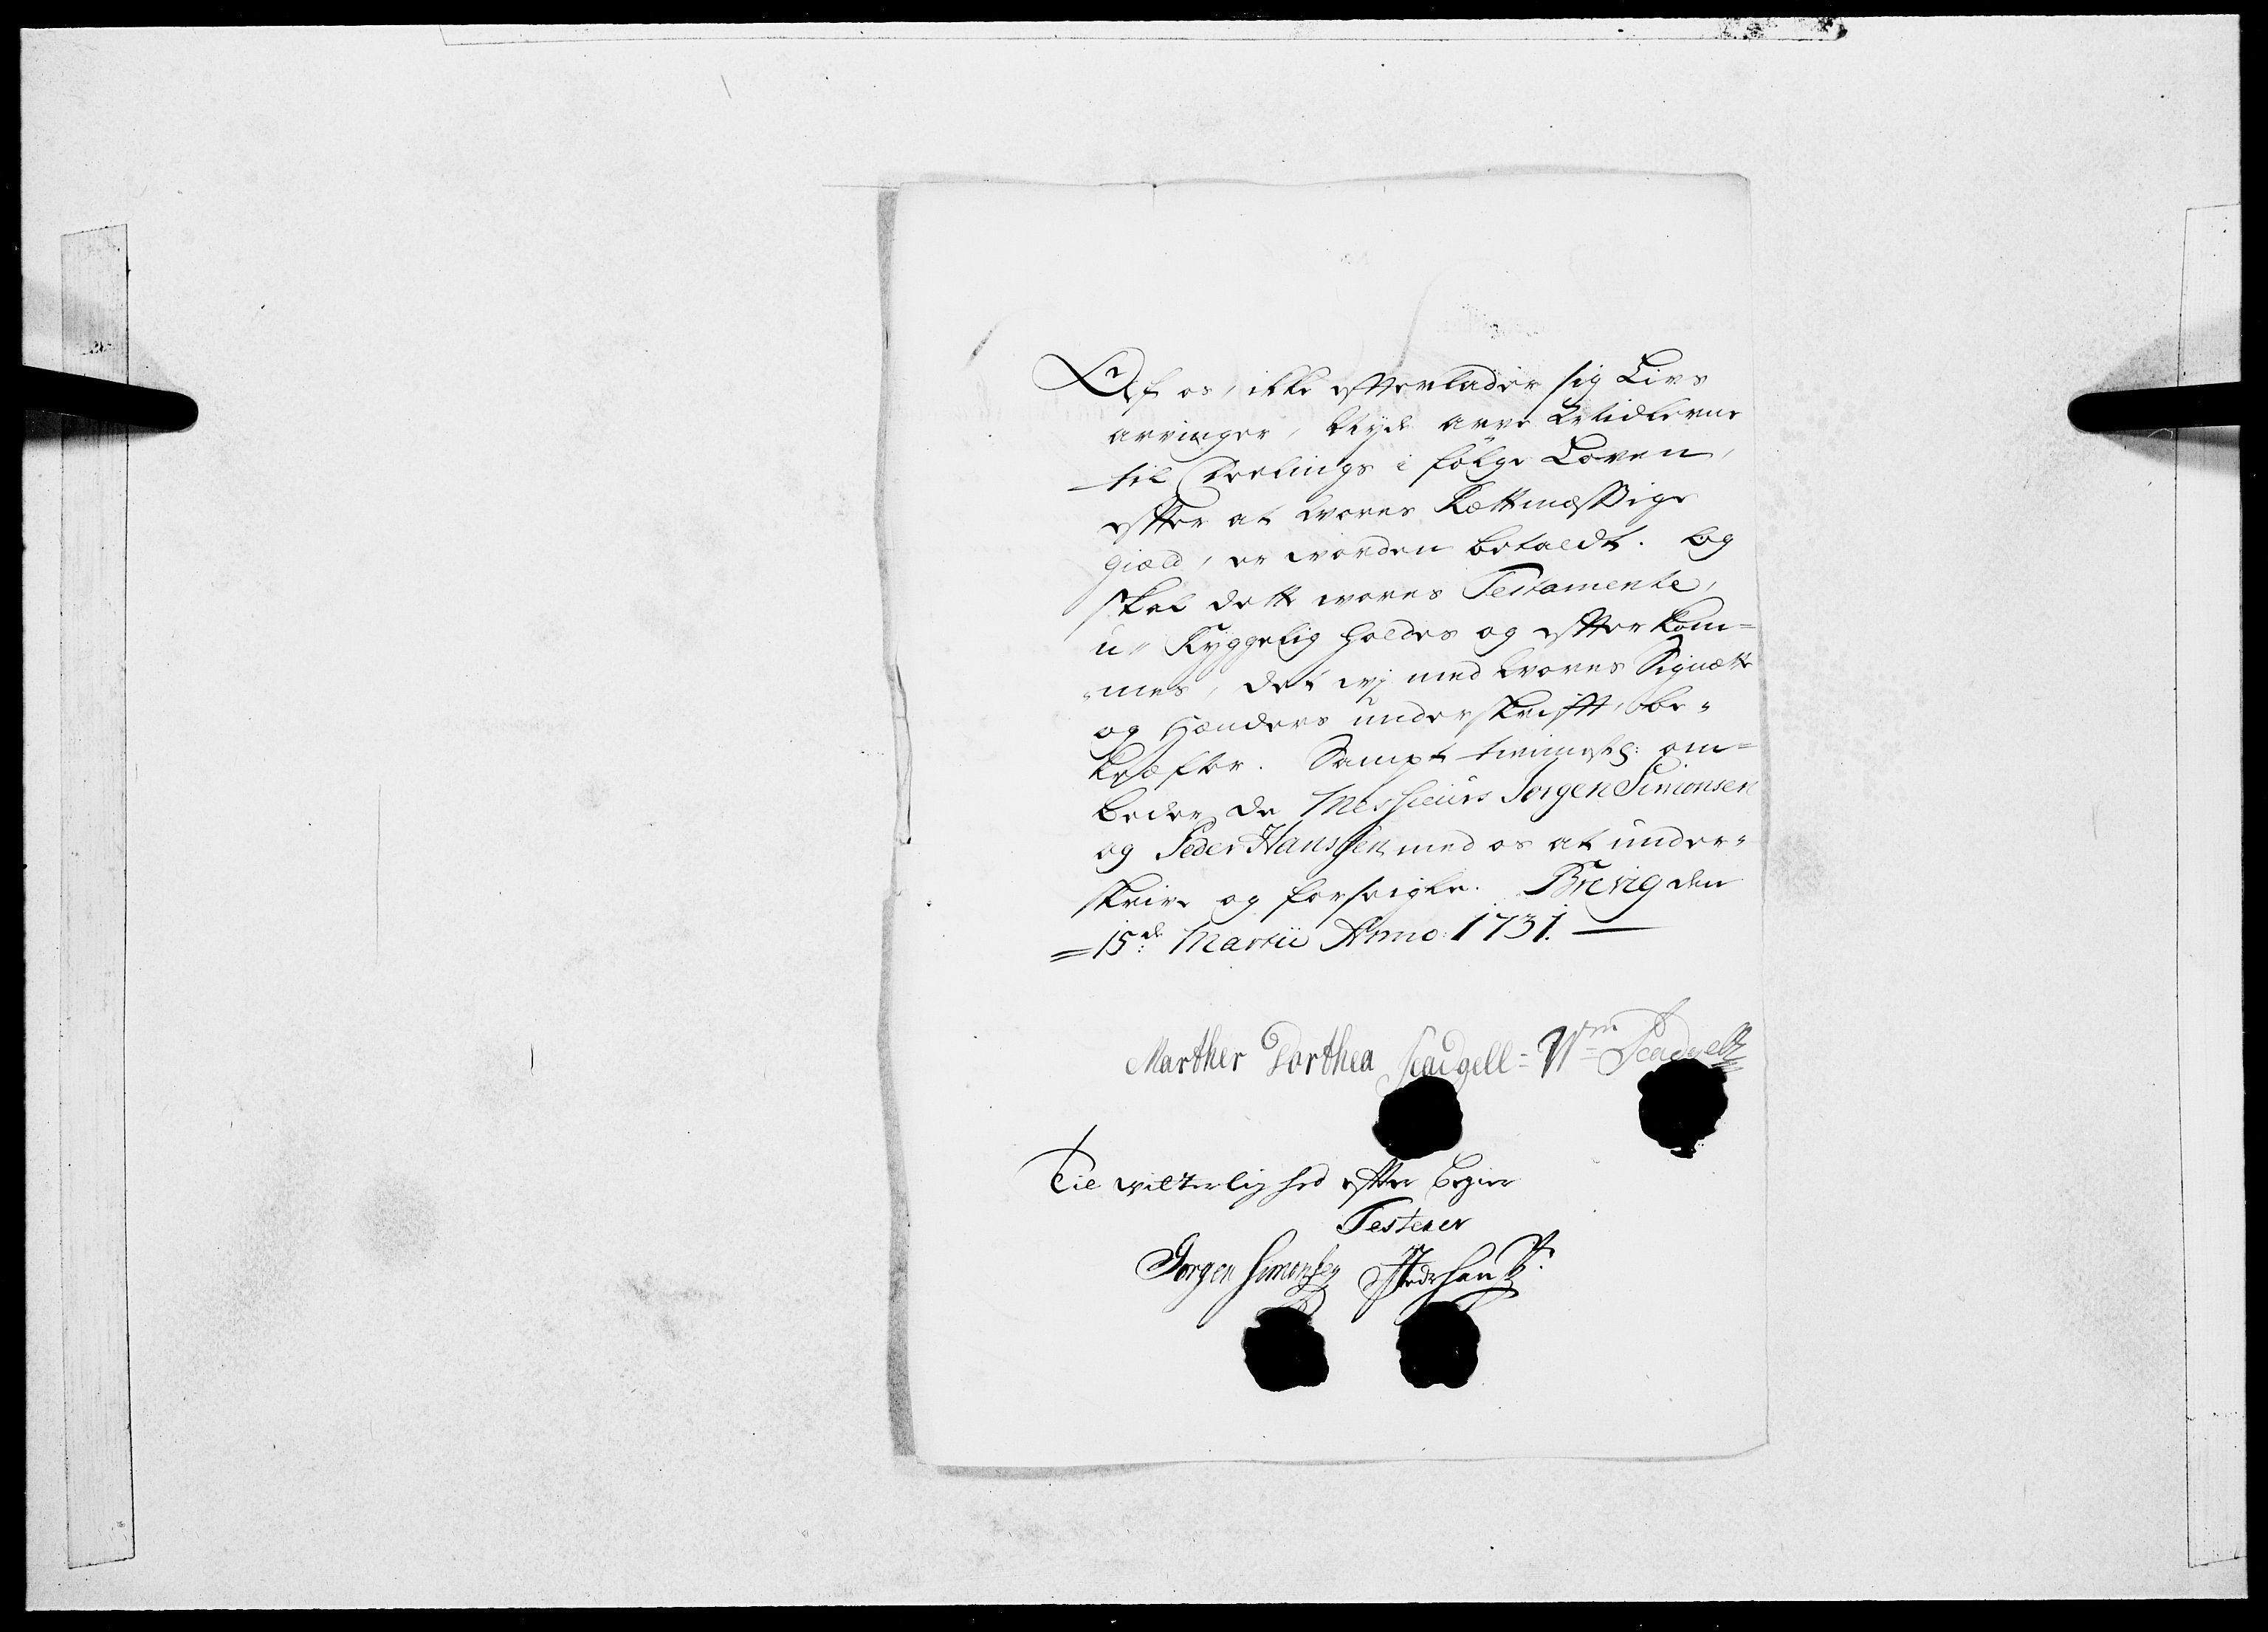 Af os, ikke efterlader sig Livs
arvinger, tilfalde arve Midlerne
til Deelings i følge Loven,
efter at vores Rettmæssige
giæld, er vorden betaldt. Og
skal dette vores Testamente,
u-Ryggelig holdes og efterkom=
mes, det vj med vores Signette
og Hænders underskrifft, be-
kræfter. Sampt tienstl: om=
beder de Messieurs Jørgen Simonsen
og Peder Hanssen med os at under-
skrive og forseigle. Brevig den
=15de Martii Anno: 1731.
Marther Dorthea Scadgell = Wm Scadgell
Til vitterlighed efter begier
Testerer
Jørgen Simonsen Peder Hanß: